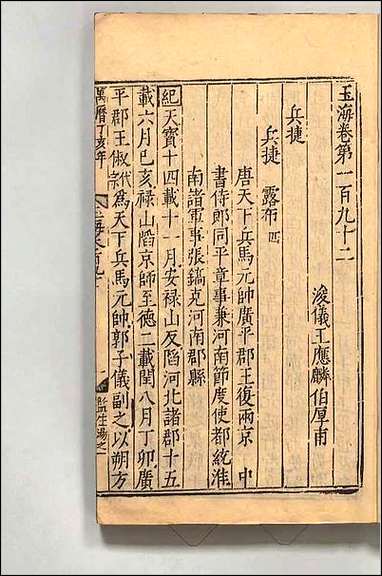 玉海卷第一百九十二
浚儀王應麟伯厚甫
兵捷
兵捷 露布四
唐天下兵馬元帥廣平郡王復兩京 中
書侍郎同平章事兼河南節度使都統淮
南諸軍事張鎬克河南郡縣
紀天寶十四載十一月安禄山反陷河北諸郡十五
載六月己亥禄山䧟京師至德二載閏八月丁卯廣
平郡王俶代宗為天下兵馬元帥郭子儀副之以朔方
萬曆丁亥年
監生馮之